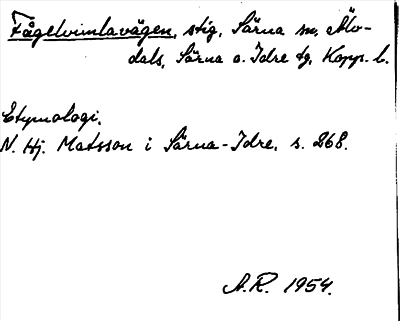 Fågelvimlavägen, stig, Särna sn, Älv-
dals, Särna o. Idre tg, Kopp. l.
Etymologi.
N. Hj. Matsson i Särna-Idre, s. 268.
A.R. 1954.